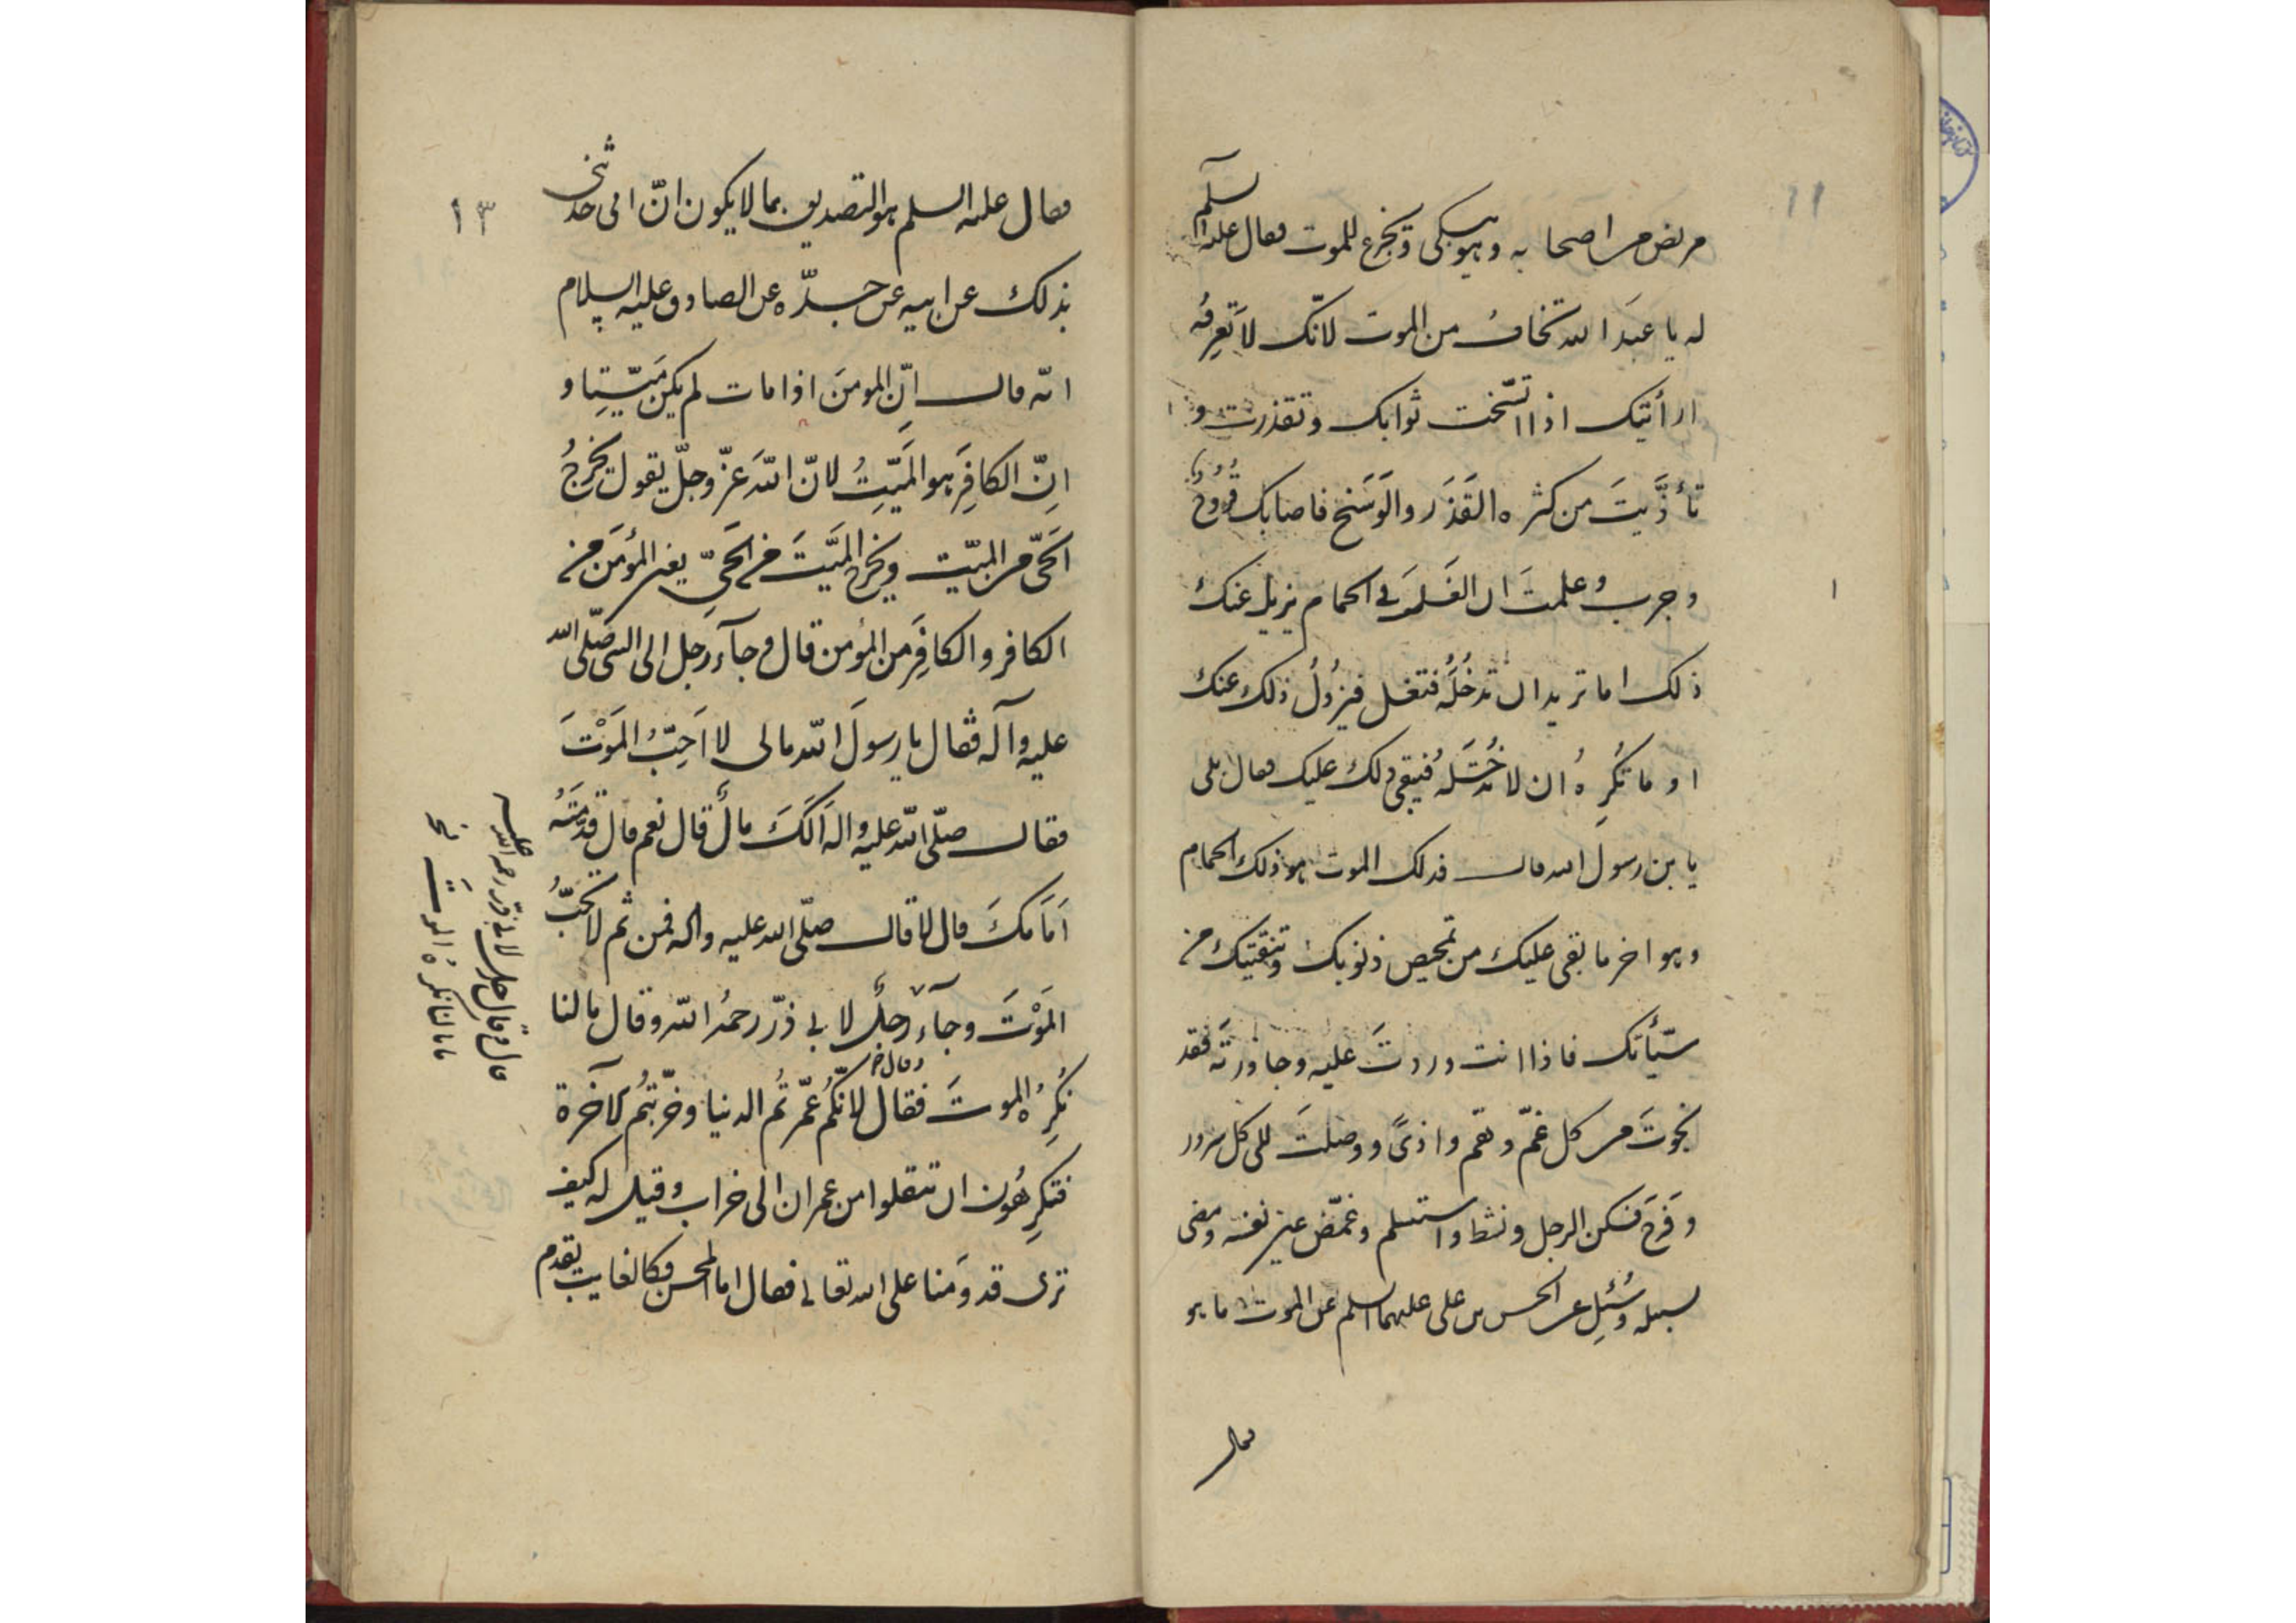 مريض من اصحابه وهو يبكى ويجزع للموت فقال عليه السلم
له يا عبدَ الله تخافُ من الموت لانّك لا تَعرِفُه
ارأتيك اذا اتسّخت ثوابك وتقذرت و
تأذّيتَ من كثره القَذَر والوَسَخ فاصابك قُرُوحٌ
وجرب وعلمتَ ان الغَسلَ فى الحمام يزيل عنك
ذلك اما تريد ان تدخُلَه فتغسل فيزُولُ ذلك عنك
او ما تُكرِهُ ان لا تدخُلَه فيبقى ذلك عليك فقال بلى
يا بن رسول الله قال فذلك الموت هو ذلك الحمام
وهو اخر ما بقى عليك من تمحيص ذنوبك وتنقيتك من
سيّأتك فاذا انت وردتَ عليه وجاوزته فقد
نجوتَ من كل غمّ وهمّ واذىً ووصلتَ الى كل سرور
وفَرَح فسكن الرجل ونشط واستسلم وغمّض عين نفسه ومضى
لسبيله وسُئِل عن الحسن بن على عليهما السلم عن الموت ما هو
فقال
١٣
فقال عليه السلم هو التصديق بما لا يكون انّ ابى حدثنى
بذلك عن ابيه عن جدّه عن الصادق عليه السلام
انّه قال انّ المومنَ اذا مات لم يكن ميّتا و
انّ الكافِرَ هو الميّتُ لانّ اللهَ عزّ وجلّ يقول يخرجُ
الحىّ من الميّت ويخرج الميّتَ من الحىّ يعنى المؤمَن من
الكافر والكافِرَ من المؤمن قال وجآء رجل الى النبى صلّى الله
عليه وآله فقال يا رسولَ الله مالى لا اُحِبُّ الموْتَ
فقال صلّى الله عليه واله اَلَكَ مالٌ قال نعم قال قدّمتَهُ
اَمَامَكَ قال لا قال صلّى الله عليه واله فمن ثم لا تحبُّ
الموْتَ وجآء رجلٌ لابى ذرّ رحمهُ الله وقال مالنا
نُكرِهُ الموتَ فقال لانّكُم عمّرتُم الدنيا وخرّبتُم الآخرة
فتكرِهُون ان تنتقلوا من عمران الى خراب وقيل له كيف
ترى قدومَنا على الله تعالى فقال اما المحسن فكالغايب يقدم
قال وقال رجل لابى ذرّ رحمه الله عليه
مالنا نكرهُ الموتَ نخ